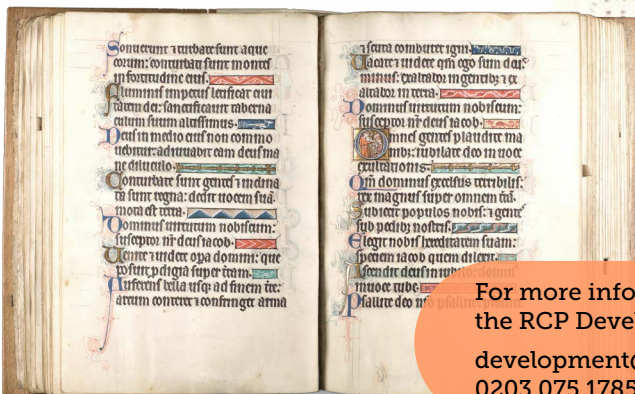 Sonuerunt ⁊ turbate sunt aque
eorum: conturbati sunt montes
in fortitudine eius.
Fluminis impetus letificat ciui
tatem dei: sanctificauit taberna
culum suum altissimus.
Deus in medio eius non commo
uebitur: adiuuabit eam deus ma
ne diluculo.
Conturbate sunt gentes ⁊ inclina
ta sunt regna: dedit uocem suā
mota est terra.
Dominus uirtutum nobiscum:
susceptor nr̄ deus iacob.
Uenite ⁊ uidete oꝑa domini: que
posuit ꝓdigia super terrā.
Auferens bella usqꝫ ad finem tr̄e:
arcum conteret ⁊ confringet arma
⁊ scuta comburet igni.
Uacate ⁊ uidete qm̄ ego sum deus
exaltabor in gentibꝫ ⁊ ex
altabor in terra.
Dominus uirtutum nobiscum:
susceptor nr̄ deus iacob.
Omnes gentes plaudite ma
nibꝫ: iubilate deo in uoce
exultationis.
Qm̄ dominus excelsus terribilis:
rex magnus super omnem trā.
Subiecit populos nobis: ⁊ gentes
sub pedibꝫ nostris.
Elegit nobis hereditatem suam:
speciem iacob quem dilexit.
Ascendit deus in
in uoce tube
Psallite deo
For more info
the RCP Deve
development@
0203 075 1785